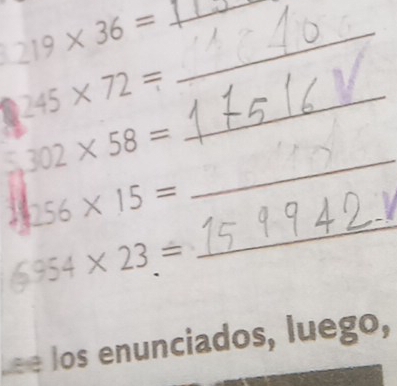 219 × 36 =
245 × 72 =
302 × 58 = 17516
256 × 15 =
6954 × 23 = 159942
los enunciados, luego,